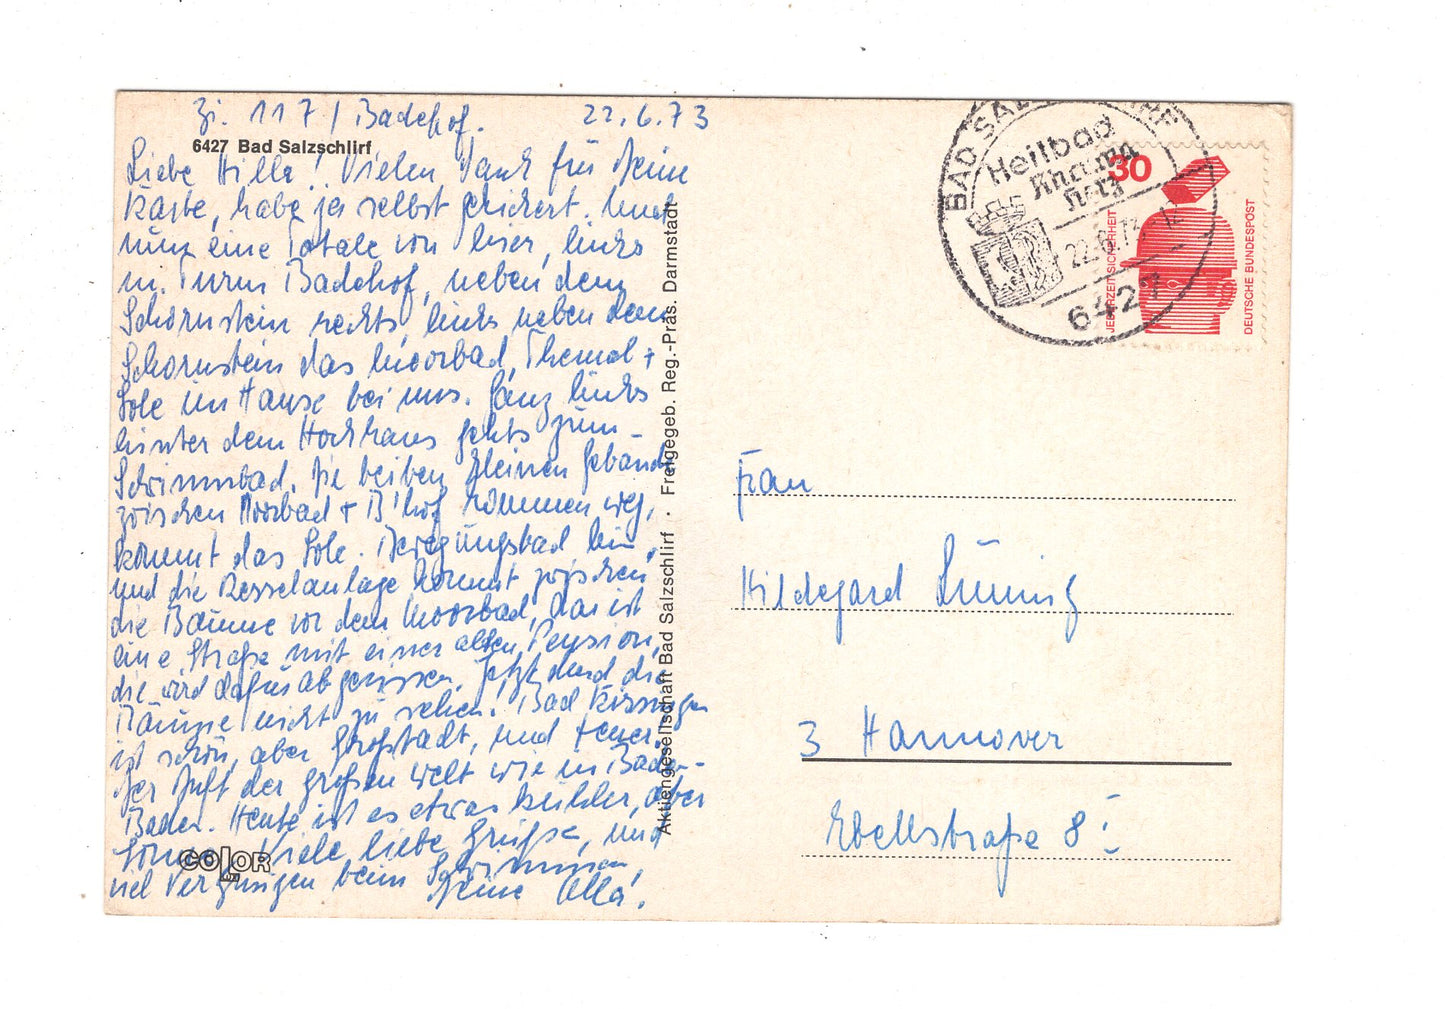 Zi. 117 / Badehof. 22.6.73
6427 Bad Salzschlirf
Liebe Hilla! Vielen Dank für Deine
Karte, habe ja selbst
nun eine Totale von hier, links
m. Turm Badehof, neben dem
Schornstein rechts, links neben dem
Schornstein das Moorbad, Themal +
Sole im Hause bei uns. Ganz links
hinter dem Hochhaus gehts zum
Schwimmbad. Die beiden kleinen Gebäude
zwischen Moorbad + B'hof kommen weg,
kommt das Sole-Bewegungsbad hin,
und die Kesselanlage kommt zwischen
die Bäume vor dem Moorbad, das ist
eine Straße mit einer alten Pension,
die wird dafür abgerissen. Jetzt durch die
Bäume nicht zu sehen. Bad Kissingen
ist schön, aber Großstadt, und teuer.
Der Duft der großen Welt wie in Baden-
Baden. Heute ist es etwas kühler, aber
Viele liebe Grüße, und
viel Vergnügen beim Schwimmen,
Deine Ulla.
COLOR
Aktiengesellschaft Bad Salzschlirf · Freigegeb. Reg.-Präs. Darmstadt
BAD SALZSCHLIRF
Heilbad
Rheuma
Herz
22.6.73-12
6427
30
JEDERZEIT SICHERHEIT
DEUTSCHE BUNDESPOST
Frau
Hildegard
3 Hannover
Ebellstraße 8